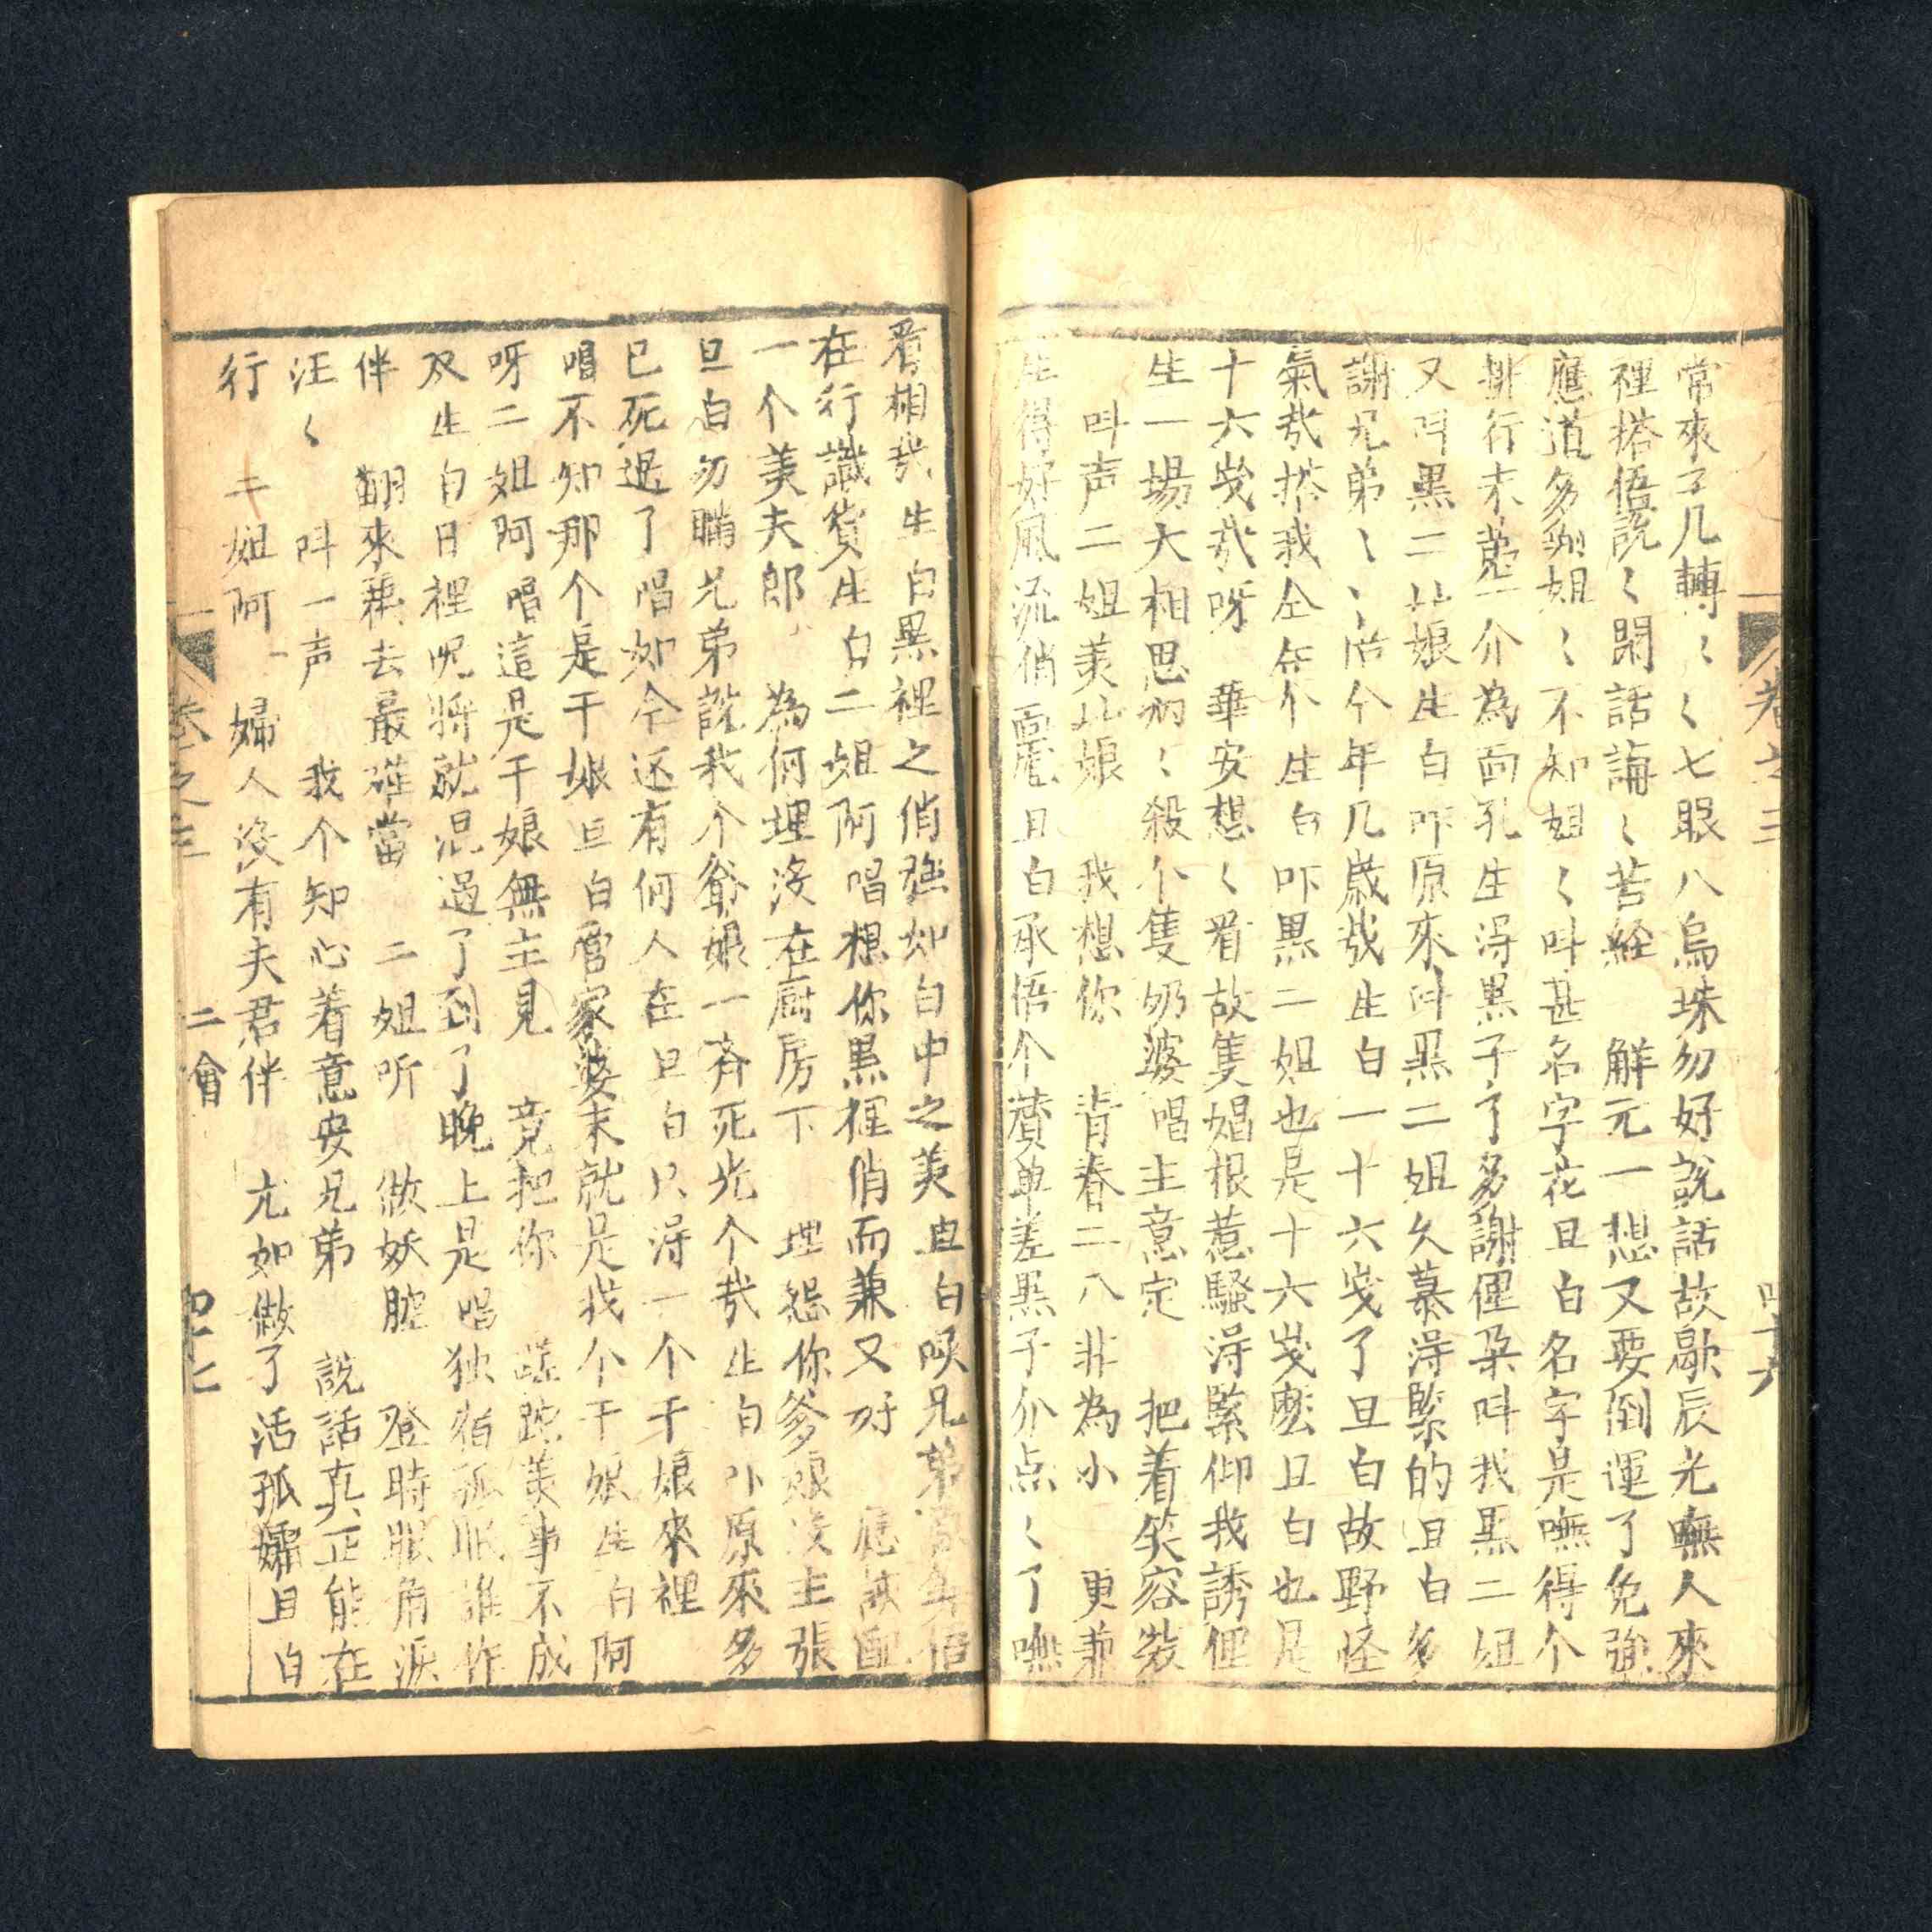 常來了几轉〻〻七眼八烏珠勿好說話故歇辰光嘸人來
裡搭俉說〻閑話誦〻苦経 觧元一想又要倒運了免強
應道多謝姐〻不知姐〻叫甚名字花旦白名字是嘸得个
排行末第一介為面孔生淂黒子了多謝俚朶叫我黒二姐
又叫黒二姑娘生白吓原來叫黒二姐久慕淂緊的旦白多
謝兄弟〻〻俉今年几歲哉生白一十六歲了旦白故野怪
氣哉搭我仝年个生白吓黒二姐也是十六歲麽旦白也是
十六歲哉呀 華安想〻看故隻娼根惹騷淂緊仰我誘俚
生一場大相思病〻殺个隻奶婆唱主意定 把着笑容裝
 叫声二姐美姑娘 我想你 青春二八非為小 更兼
生得好風流俏面龎旦白承俉个賛单差黒子介点〻了嘸
看相哉生白黒裡之俏強如白中之美旦白唉兄弟
在行識貨生白二姐阿唱想你黒裡俏而兼又好 應該配
一个美夫郎 為何埋没在厨房下 埋怨你爹娘没主張
旦白勿瞞兄弟說我个爺娘一齐死光个哉生白吓原來多
已死過了唱如今还有何人在旦白只淂一个干娘來裡
唱不知那个是干娘旦白管家婆末就是我个干娘生白阿
呀二姐阿唱這是干娘無主見 竟把你 蹉跎美事不成
双生白日裡呢將就混過了到了晚上是唱独宿孤眠誰作
伴 翻來覆去最难當 二姐听 做妖腔 登時眼角淚
汪〻 叫一声 我个知心着意安兄弟 說話真正能在
行 干姐阿 婦人没有夫君伴 尤如做了活孤孀旦白
卷之三 二會 四十七